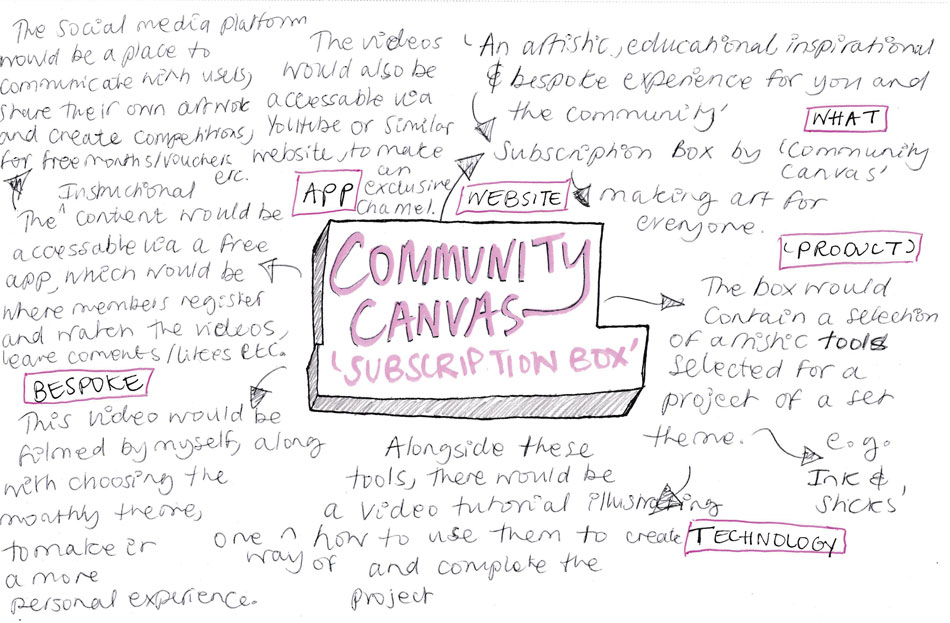 The social media platform
would be a place to
communicate with users,
share their own artwork
and create competitions,
for free months/vouchers
etc.
The videos
would also be
accessable via
YouTube or similar
website, to make
an
exclusive
channel.
'An artistic, educational, inspirational
& bespoke experience for you and
the community'
WHAT
Subscription Box by 'Community
Canvas'
APP
WEBSITE
making art for
everyone.
Instructional
The ^ content would be
accessable via a free
app, which would be
where members register
and watch the videos,
leave coments/likes etc.
COMMUNITY
CANVAS
'SUBSCRIPTION BOX'
(PRODUCT)
The box would
contain a selection
of artistic tools
selected for a
project of a set
theme.
e.g.
'Ink &
Sticks'
BESPOKE
This video would be
filmed by myself, along
with choosing the
monthly theme,
to make it
a more
personal experience.
Alongside these
tools, there would be
a video tutorial illustrating
one ^ how to use them to create
way of
and complete the
project
TECHNOLOGY